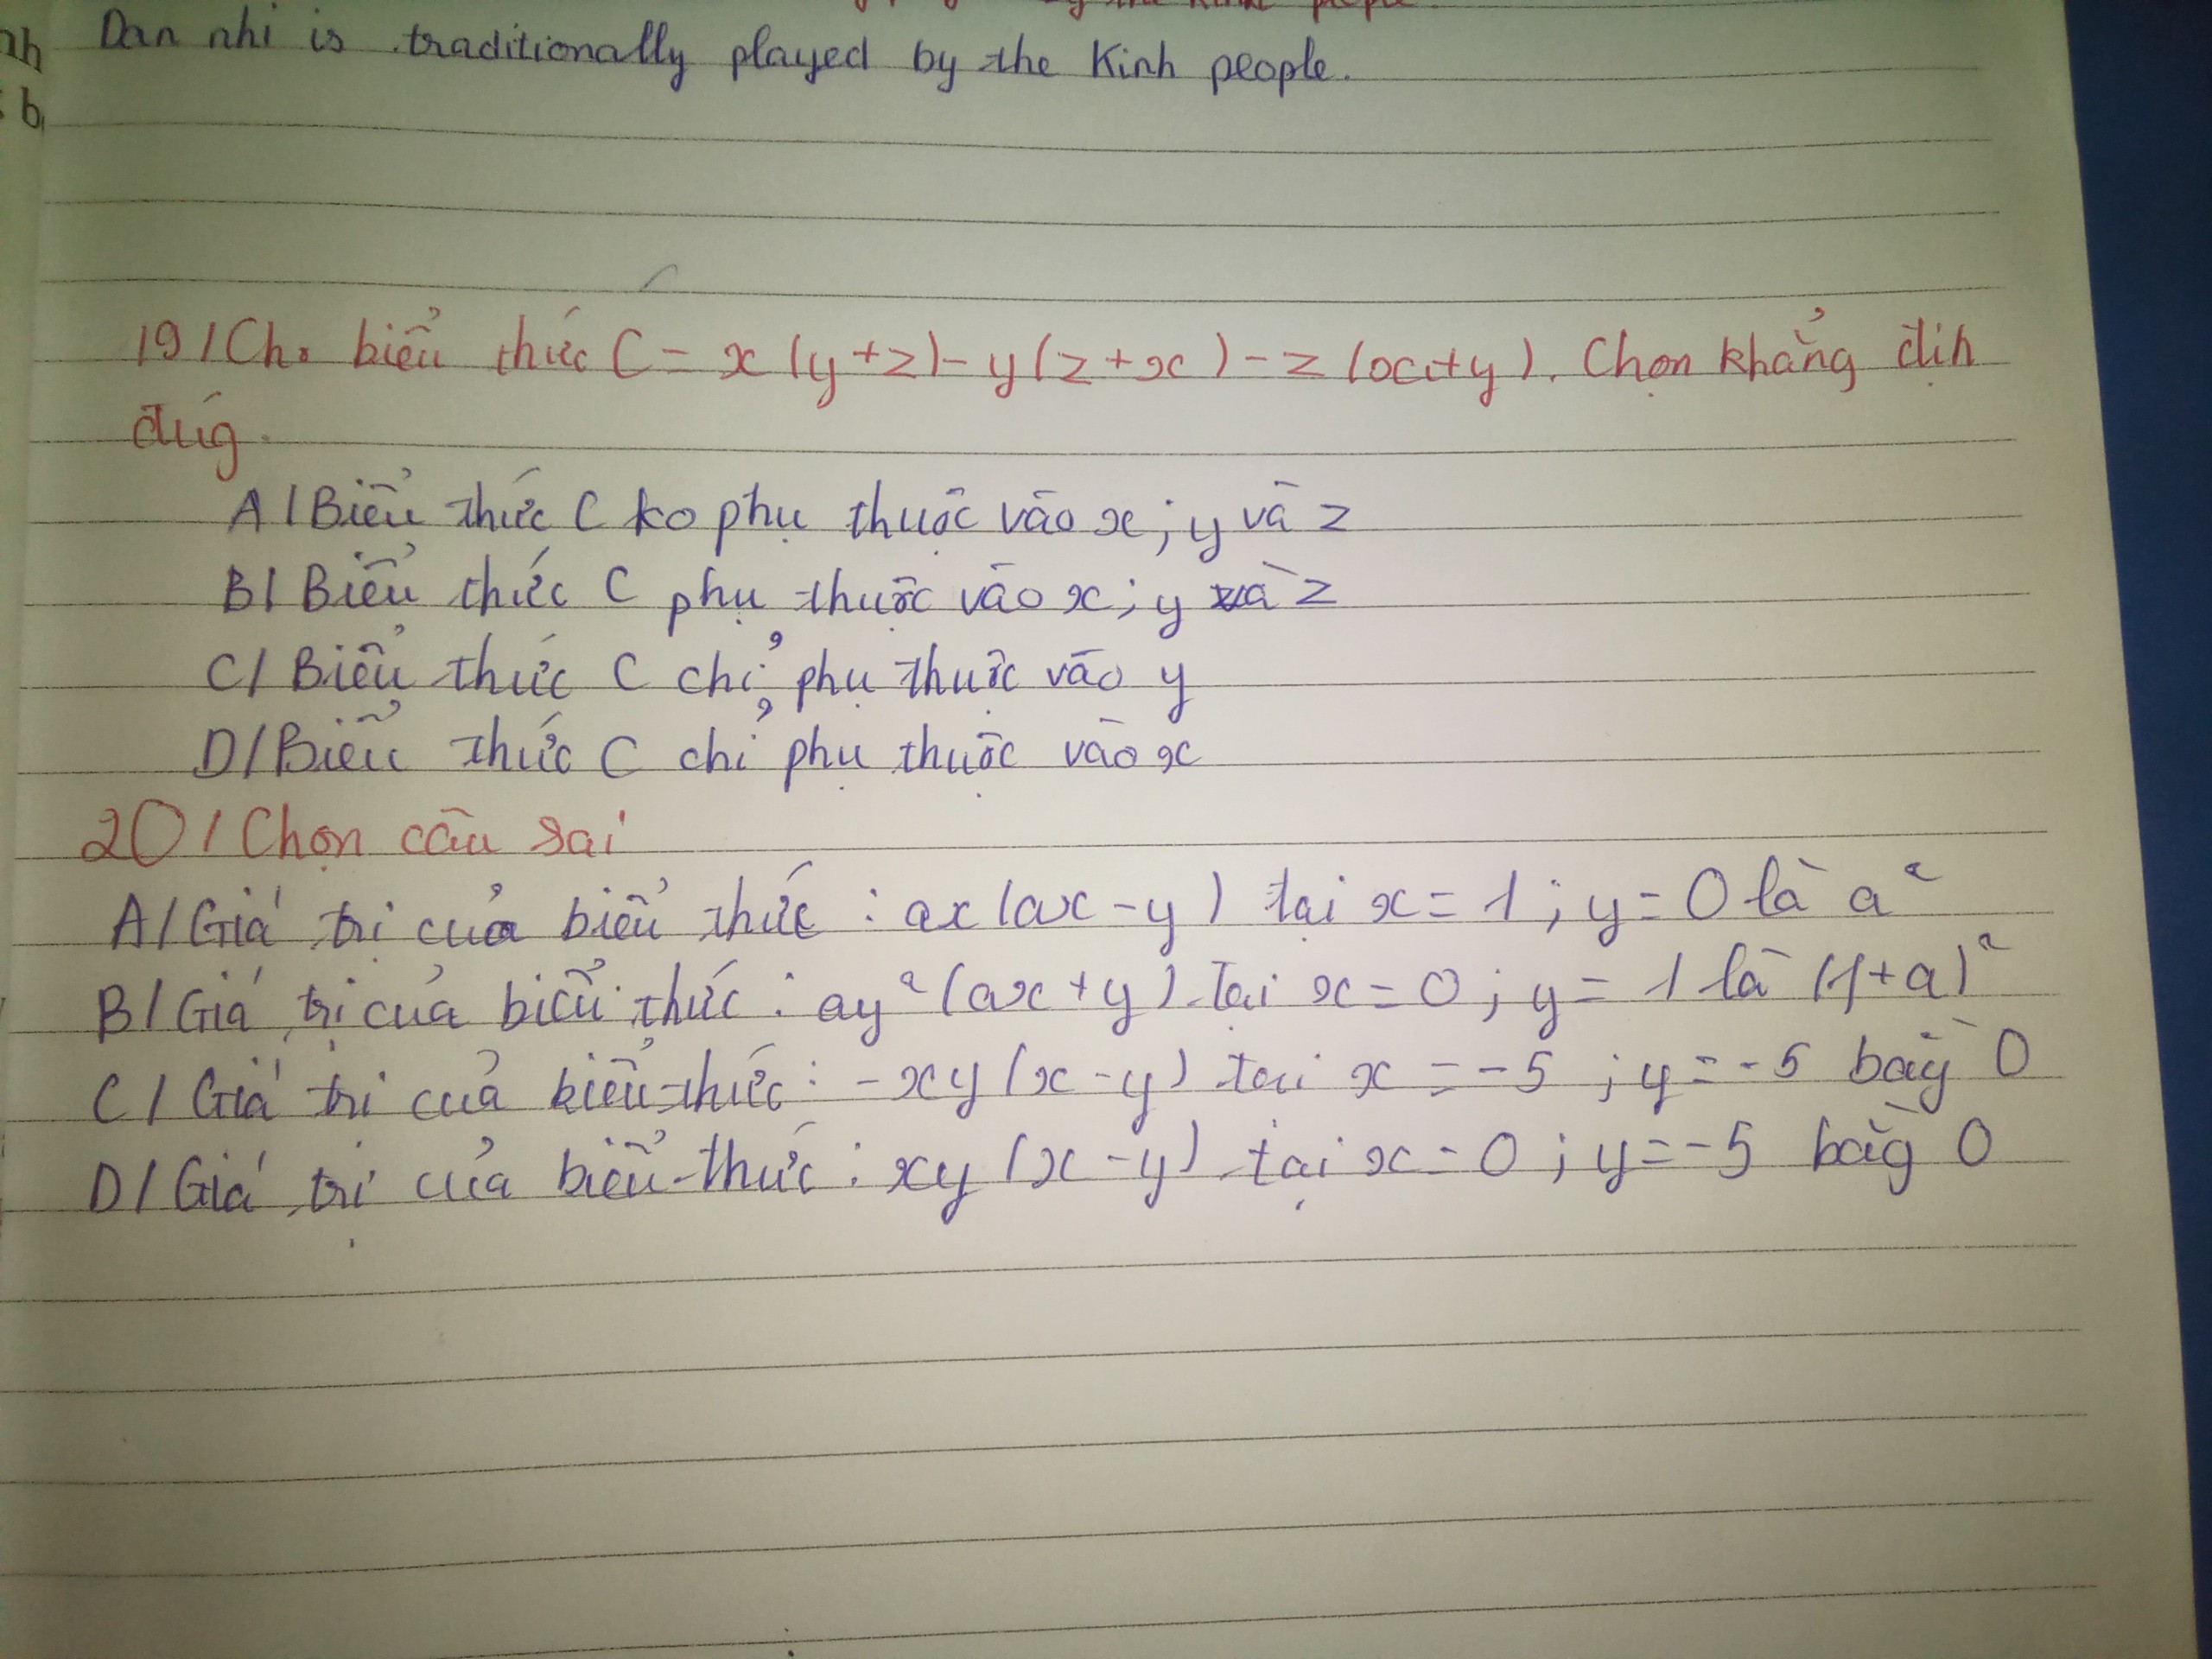 by the Kinh people.
nh Dan nhi is traditionally played by the Kinh people.
b
19/ Cho biểu thức C = x(y+z) - y(z+x) - z(x+y). Chọn khẳng địh
đúg.
A/ Biểu thức C ko phụ thuộc vào x; y và z
B/ Biểu thức C phụ thuộc vào x; y và z
C/ Biểu thức C chỉ phụ thuộc vào y
D/ Biểu thức C chỉ phụ thuộc vào x
20/ Chọn câu sai
A/ Giá trị của biểu thức : ax(ax-y) tại x=1; y=0 là a²
B/ Giá trị của biểu thức : ay²(ax+y) tại x=0; y=1 là (1+a)²
C/ Giá trị của biểu thức : -xy(x-y) tại x=-5; y=-5 bằg 0
D/ Giá trị của biểu thức : xy(x-y) tại x=0; y=-5 bằg 0